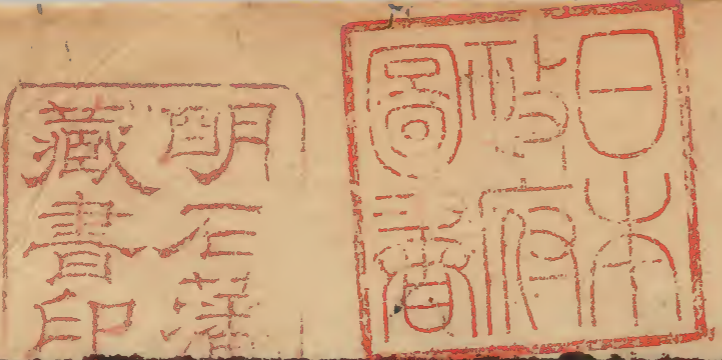 日本
政府
圖書
明石藩
藏書印